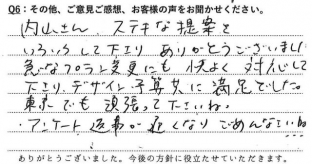 Q6：その他、ご意見ご感想、お客様の声をお聞かせください。
内山さん、ステキな提案を
いろいろして下さり ありがとうございました
急なプラン変更にも 快よく 対応して
下さり、デザイン・予算共に 満足でした。
東京でも 頑張って下さいね。
・アンケート 返事が 遅くなり ごめんなさいね
ありがとうございました。今後の方針に役立たせていただきます。